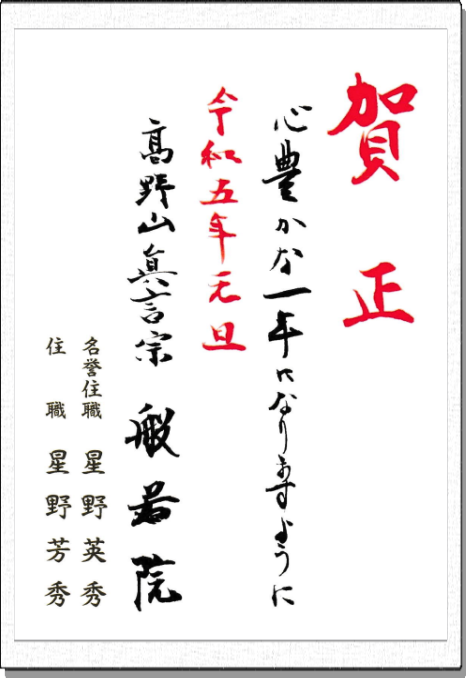 賀正
心豊かな一年になりますように
令和五年元旦
高野山眞言宗 般若院
名誉住職 星野英秀
住職 星野芳秀